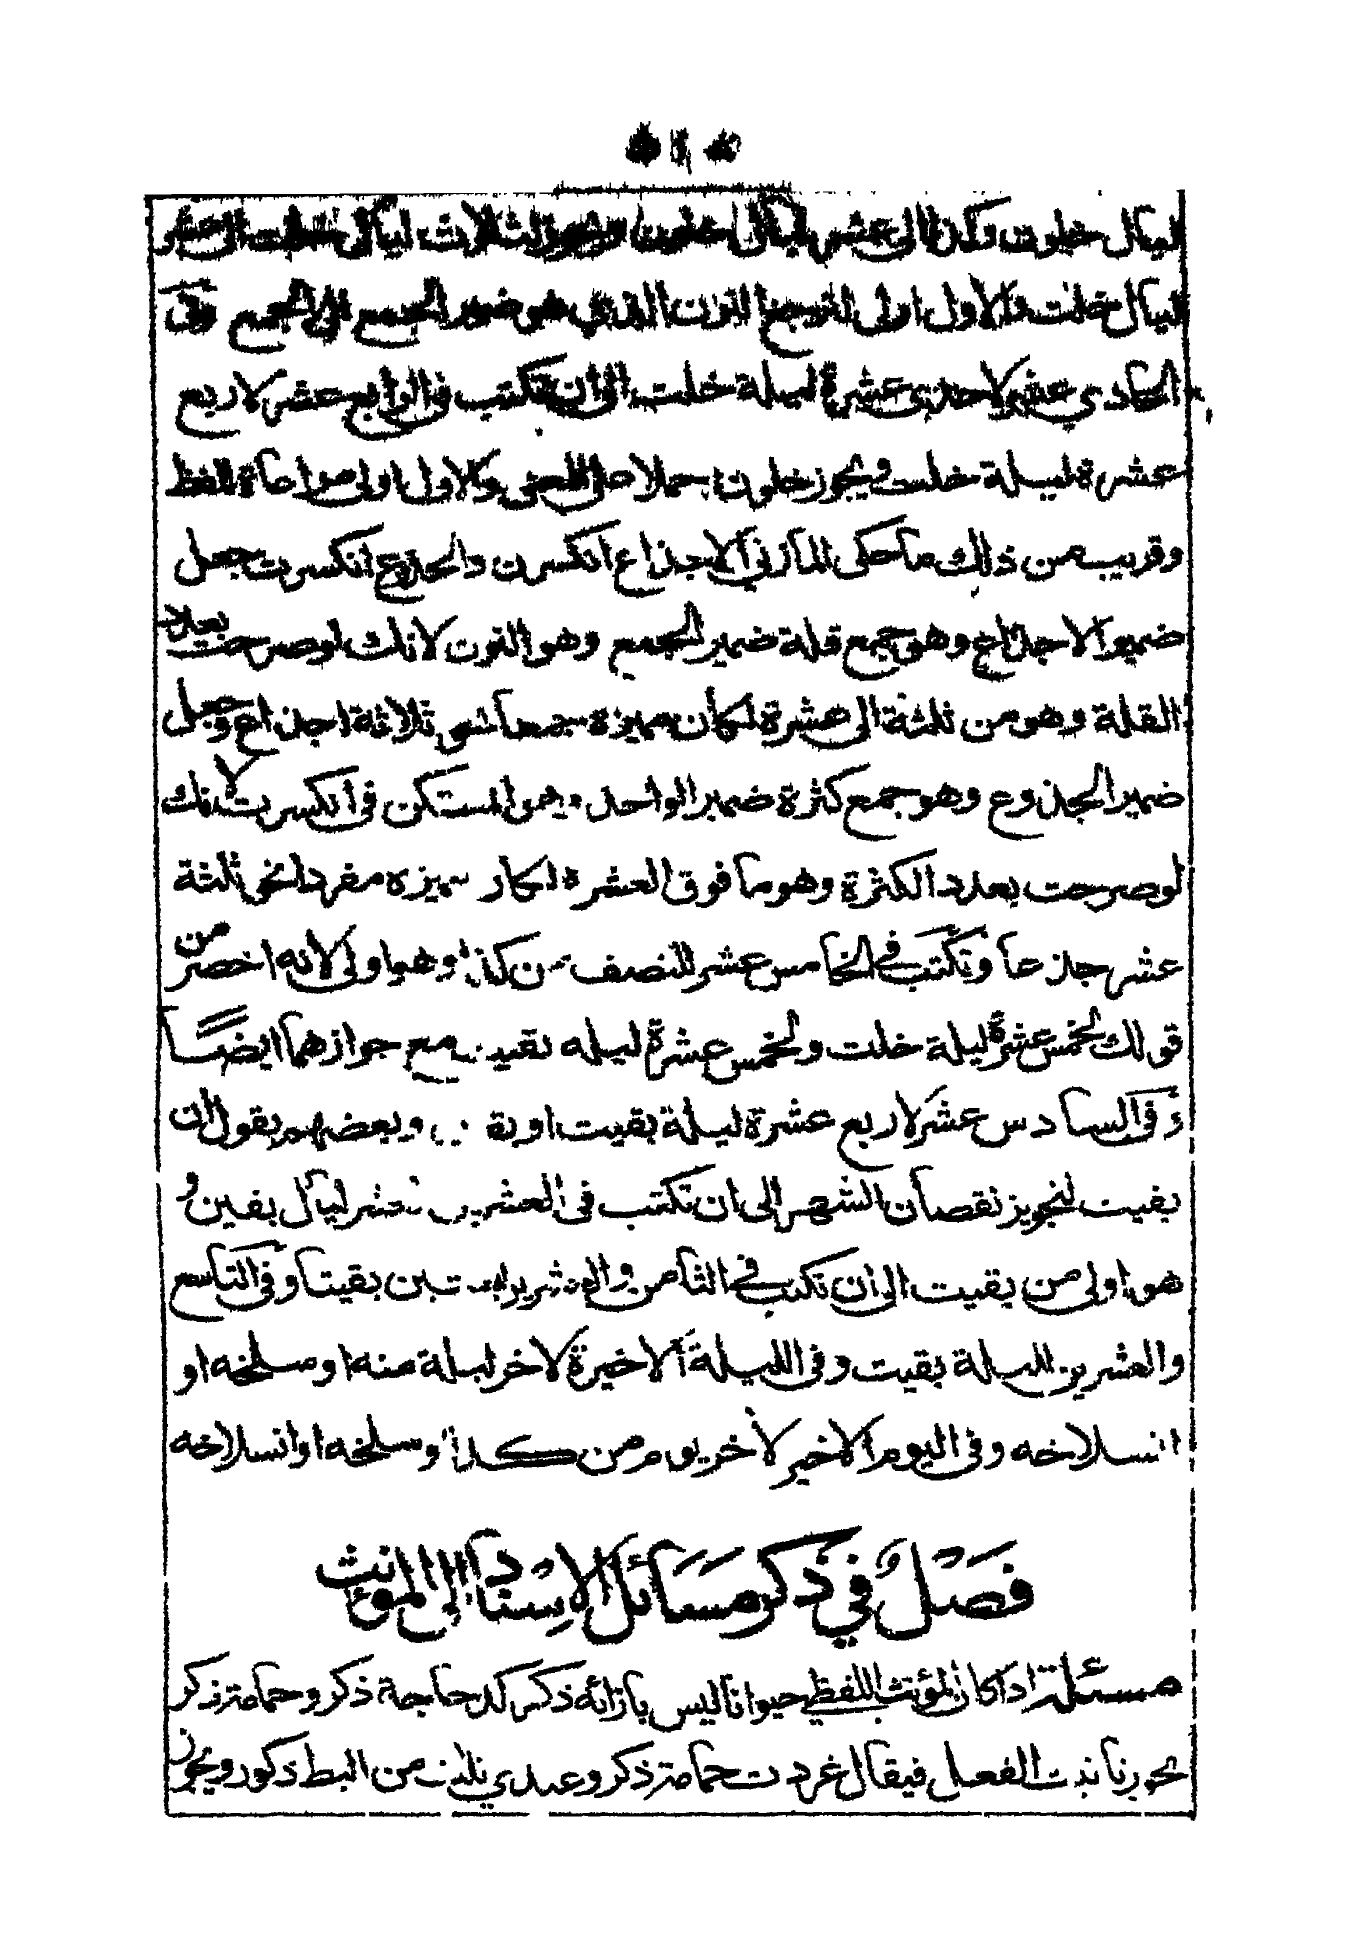 ليال خلون وكذا الى عشر ليال خلون ويجوز لثلاث ليال خلت الى عشر
ليال خلت والاول اولى لترجع النون الذي هو ضمير الجمع الى الجمع وفى
الحادي عشر لاحدى عشرة ليلة خلت الى أن تكتب فى الرابع عشر لاربع
عشرة ليلة خلت ويجوز خلون حملا على المعنى والاول اولى مراعاة للفظ
وقريب من ذلك ما حكى المازني الاجذاع انكسرن والجذوع انكسرت جعل
ضمير الاجذاع وهو جمع قلة ضمير الجمع وهو النون لانك لو صرحت بعدد
القلة وهو من ثلثة الى عشرة لكان مميزه جمعا نحو ثلاثة اجذاع وجعل
ضمير الجذوع وهو جمع كثرة ضمير الواحد وهو المستكن فى انكسرت لانك
لو صرحت بعدد الكثرة وهو ما فوق العشرة لكان مميزه مفردا نحو ثلثة
عشر جذعا وتكتب في الخامس عشر للنصف من كذا وهو اولى لانه اخصر من
قولك لخمس عشرة ليلة خلت ولخمس عشرة ليله بقين مع جوازهما ايضا
وفى السادس عشر لاربع عشرة ليلة بقيت او بقين وبعضهم يقول ان
بقيت لتجويز نقصان الشهر الى ان تكتب فى العشرين لعشر ليال بقين و
هو اولى من بقيت الى ان تكتب في الثامن والعشرين لليلتين بقيتا وفى التاسع
والعشرين لليلة بقيت وفى الليلة الاخيرة لاخر ليلة منه او سلخه او
انسلاخه وفى اليوم الاخير لأخر يوم من كذا او سلخه او انسلاخه
فصل في ذكر مسائل الاسناد الى المؤنث
مسئلة اذا كان المؤنث اللفظي حيوانا ليس بازائه ذكر كدجاجة ذكر وحمامة ذكر
يجوز تانيث الفعل فيقال غردت حمامة ذكر وعندي ثلث من البط ذكور ويجوز